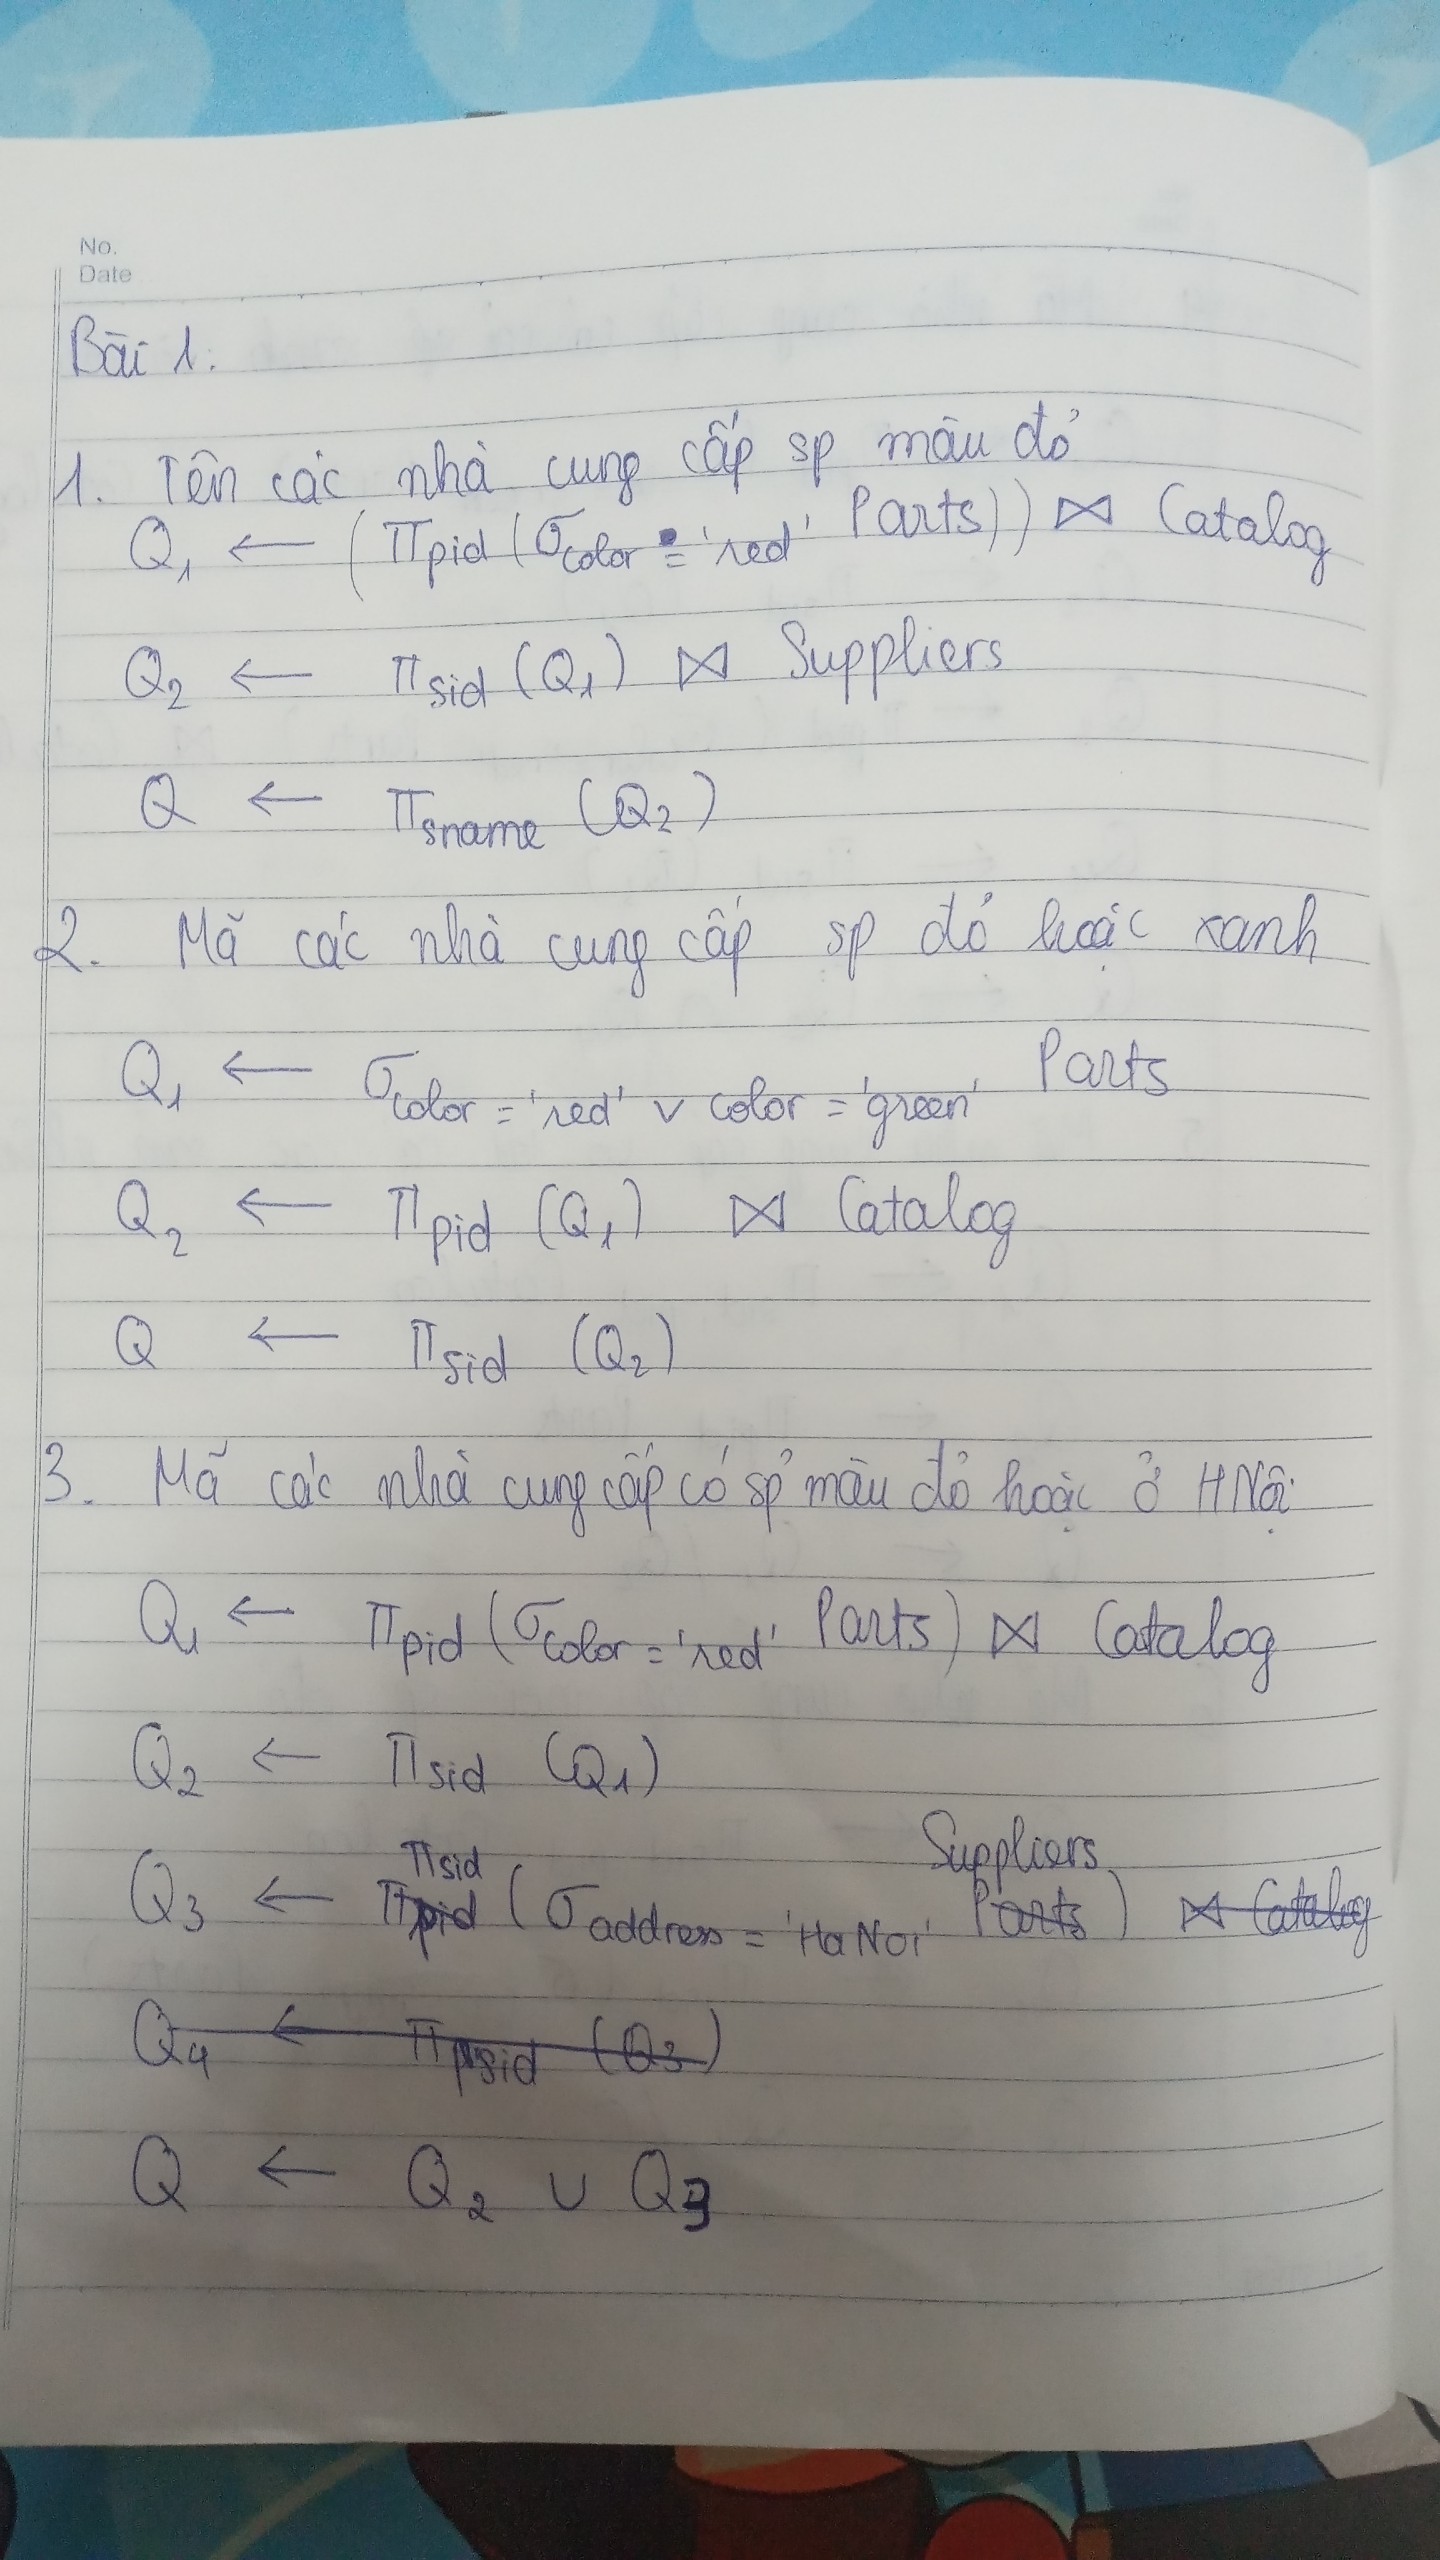 No.
Date
Bài 1.
1. Tên các nhà cung cấp sp màu đỏ
Q₁ ← (π pid (σ color = 'red' Parts)) ⋈ Catalog
Q₂ ← π sid (Q₁) ⋈ Suppliers
Q ← π sname (Q₂)
2. Mã các nhà cung cấp sp đỏ hoặc xanh
Q₁ ← σ color = 'red' ∨ color = 'green' Parts
Q₂ ← π pid (Q₁) ⋈ Catalog
Q ← π sid (Q₂)
3. Mã các nhà cung cấp có sp màu đỏ hoặc ở HNội
Q₁ ← π pid (σ color = 'red' Parts) ⋈ Catalog
Q₂ ← π sid (Q₁)
π sid Suppliers
Q₃ ← π pid (σ address = 'Ha Noi' Parts) ⋈ Catalog
Q₄ ← π sid (Q₃)
Q ← Q₂ ∪ Q₃